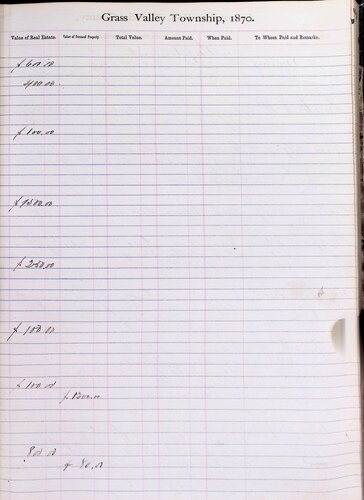 Grass Valley Township, 1870.
Value of Real Estate. Value of Personal Property. Total Value. Amount Paid. When Paid. To Whom Paid and Remarks.
600.00
400.00
100.00
250.00
100 00
100.00
1200.00